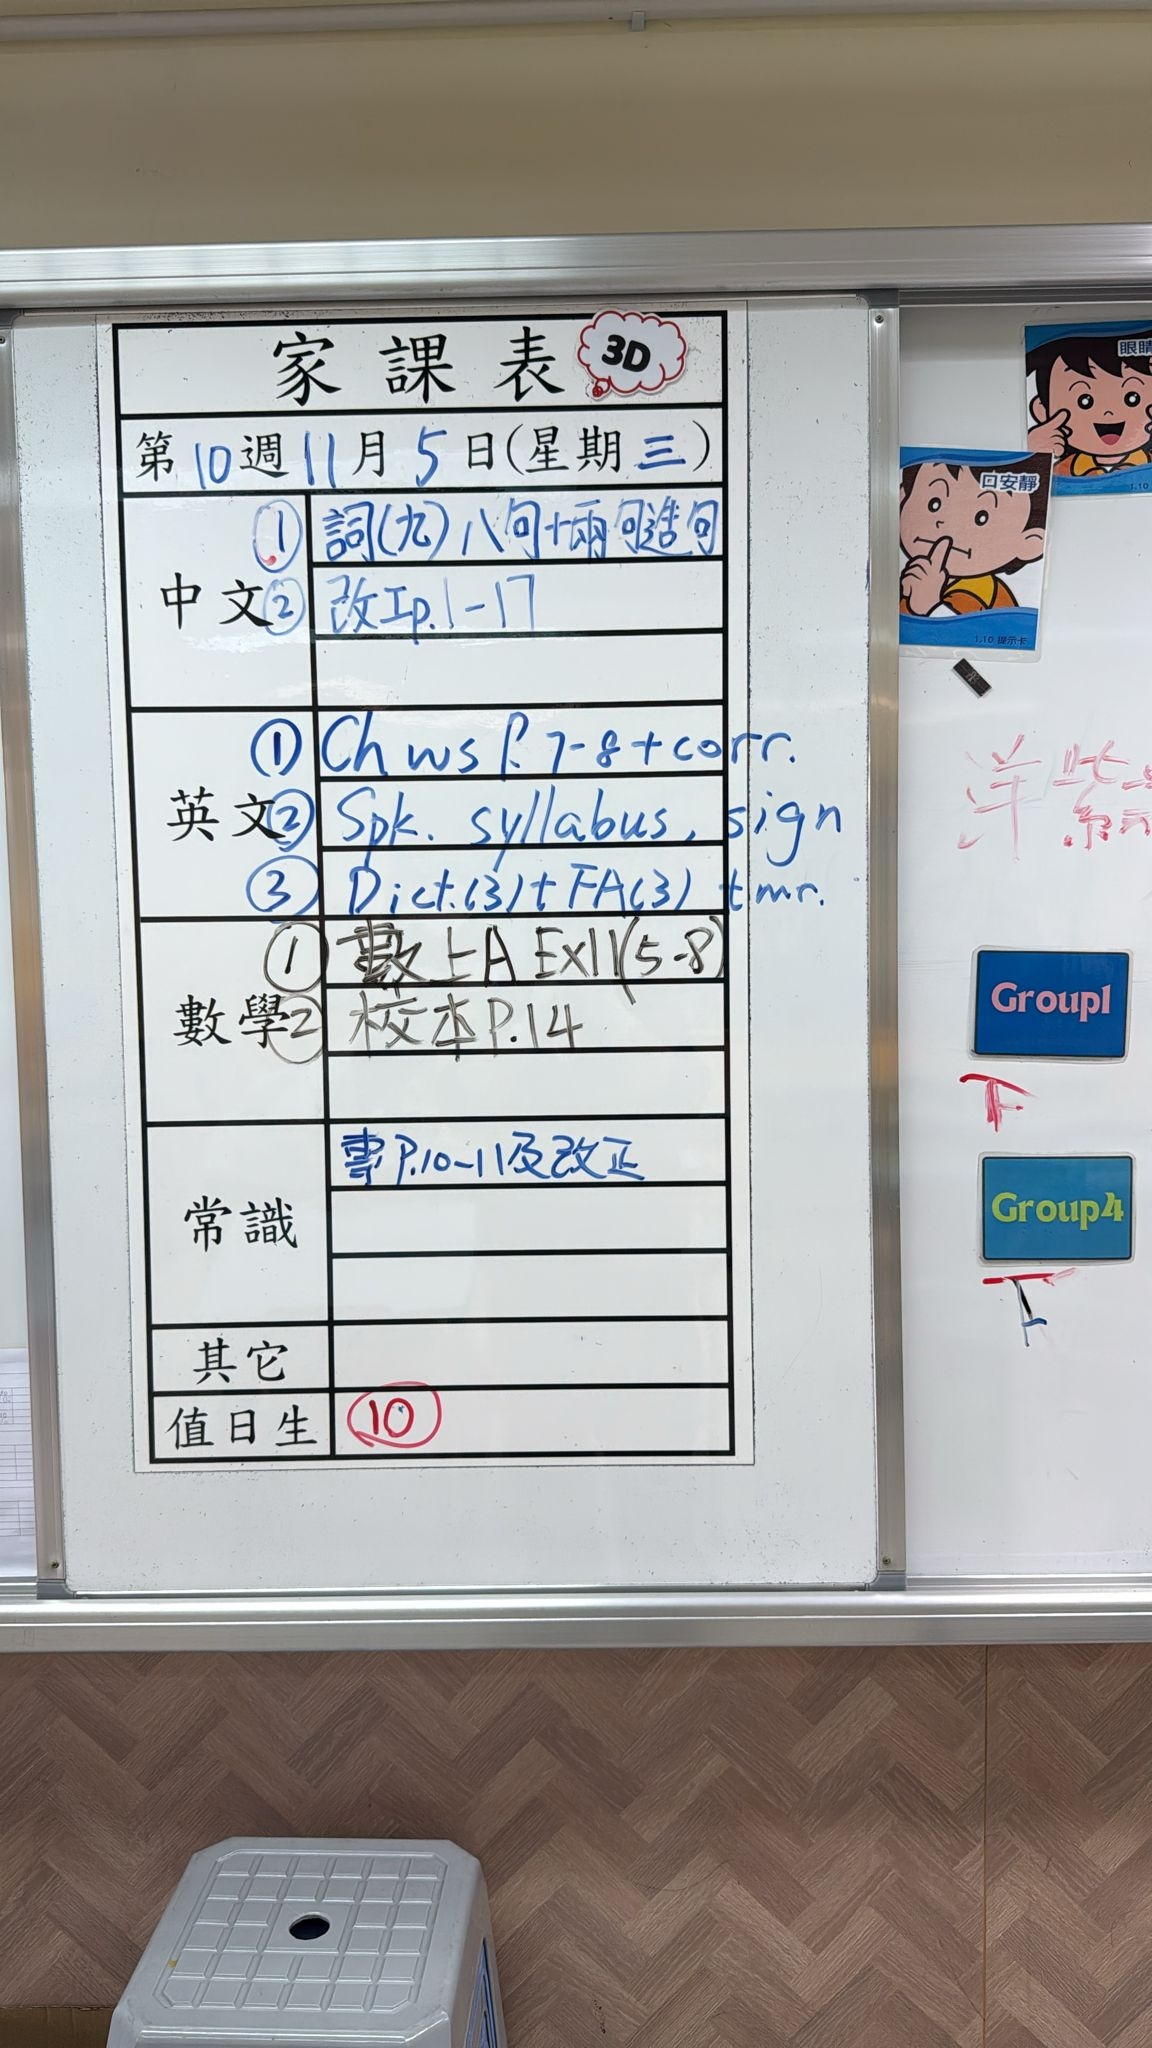 家課表 3D
第10週11月5日(星期三)
中文
① 詞(九)八句+兩句造句
② 改工p.1-17
英文
① Ch ws P.7-8+corr.
② Spk. syllabus, sign
③ Dict.(3)+FA(3) tmr.
數學
① 數上A Ex11(5-8)
② 校本P.14
常識
書P.10-11及改正
其它
值日生 10
眼睛
1.10
口安靜
1.10 提示卡
洋紫
Group1
Group4